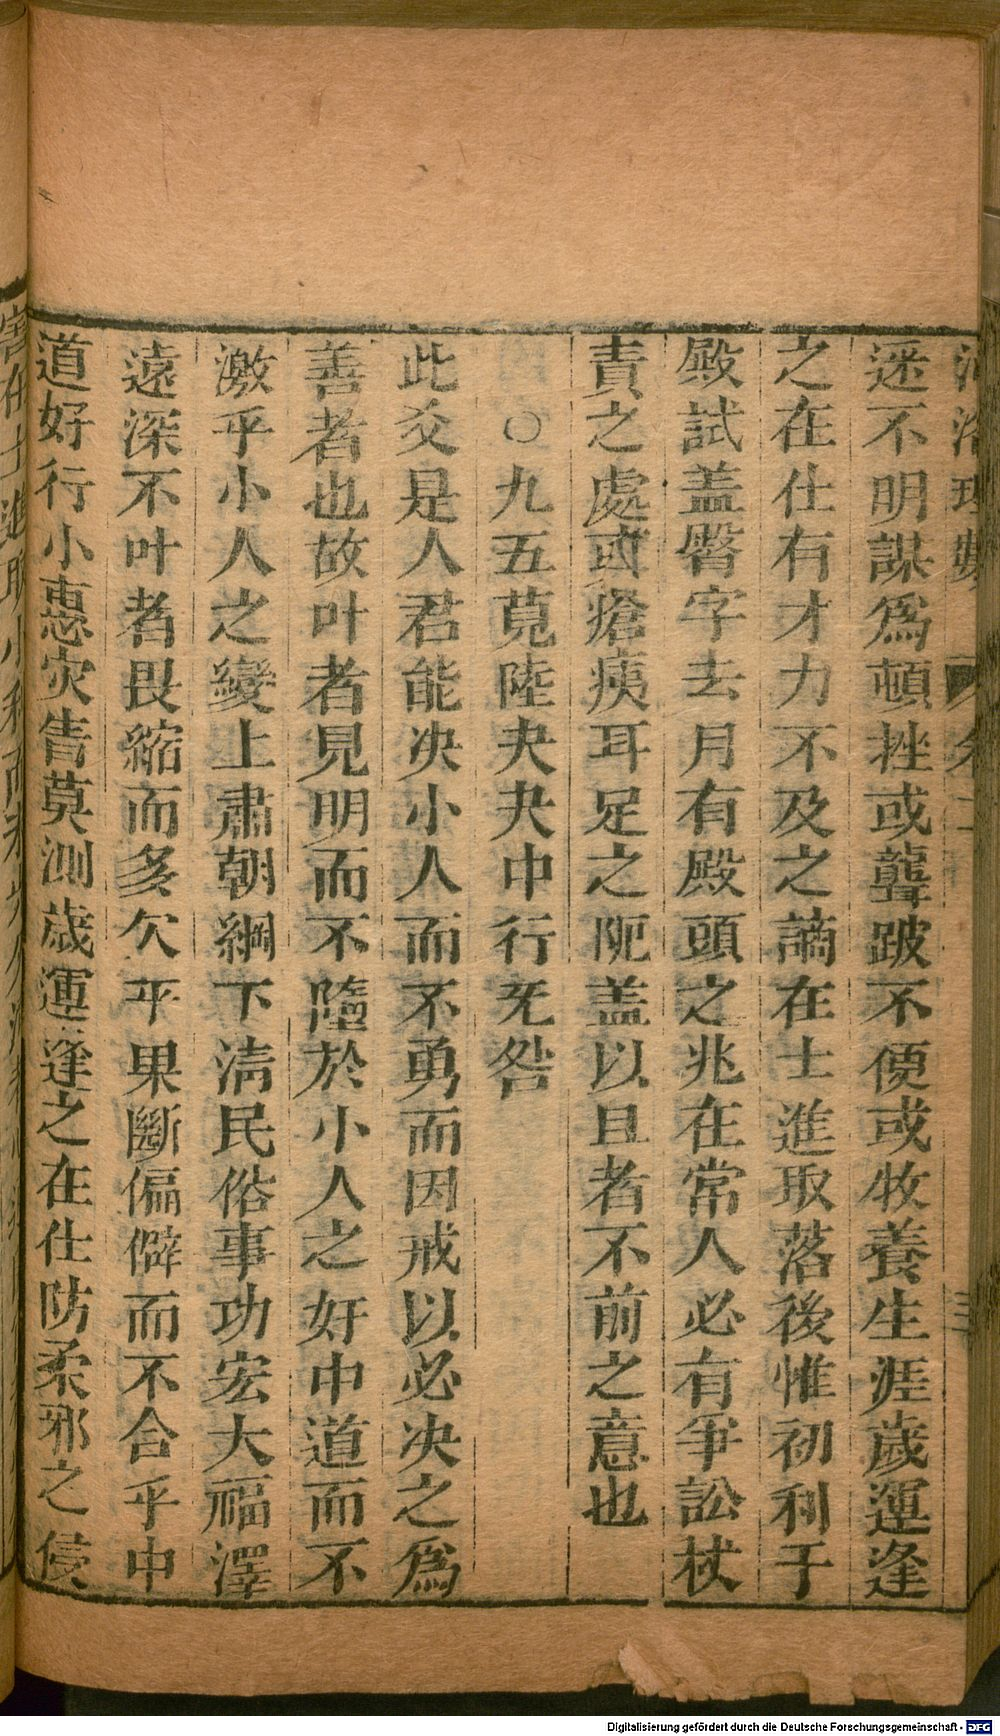 河洛理數
迷不明謀為頓挫或聾跛不便或牧養生涯歲運逢
之在仕有才力不及之謫在士進取落後惟初利于
殿試盖臀字去月有殿頭之兆在常人必有爭訟杖
責之處或瘡痍耳足之阨盖以且者不前之意也
○九五莧陸夬夬中行旡咎
此爻是人君能决小人而不勇而因戒以必决之為
善者也故叶者見明而不墮於小人之奸中道而不
激乎小人之變上肅朝綱下淸民俗事功宏大福澤
遠深不叶者畏縮而多欠平果斷偏僻而不合乎中
道好行小惠灾眚莫測歲運逢之在仕防柔邪之侵
Digitalisierung gefördert durch die Deutsche Forschungsgemeinschaft - DFG